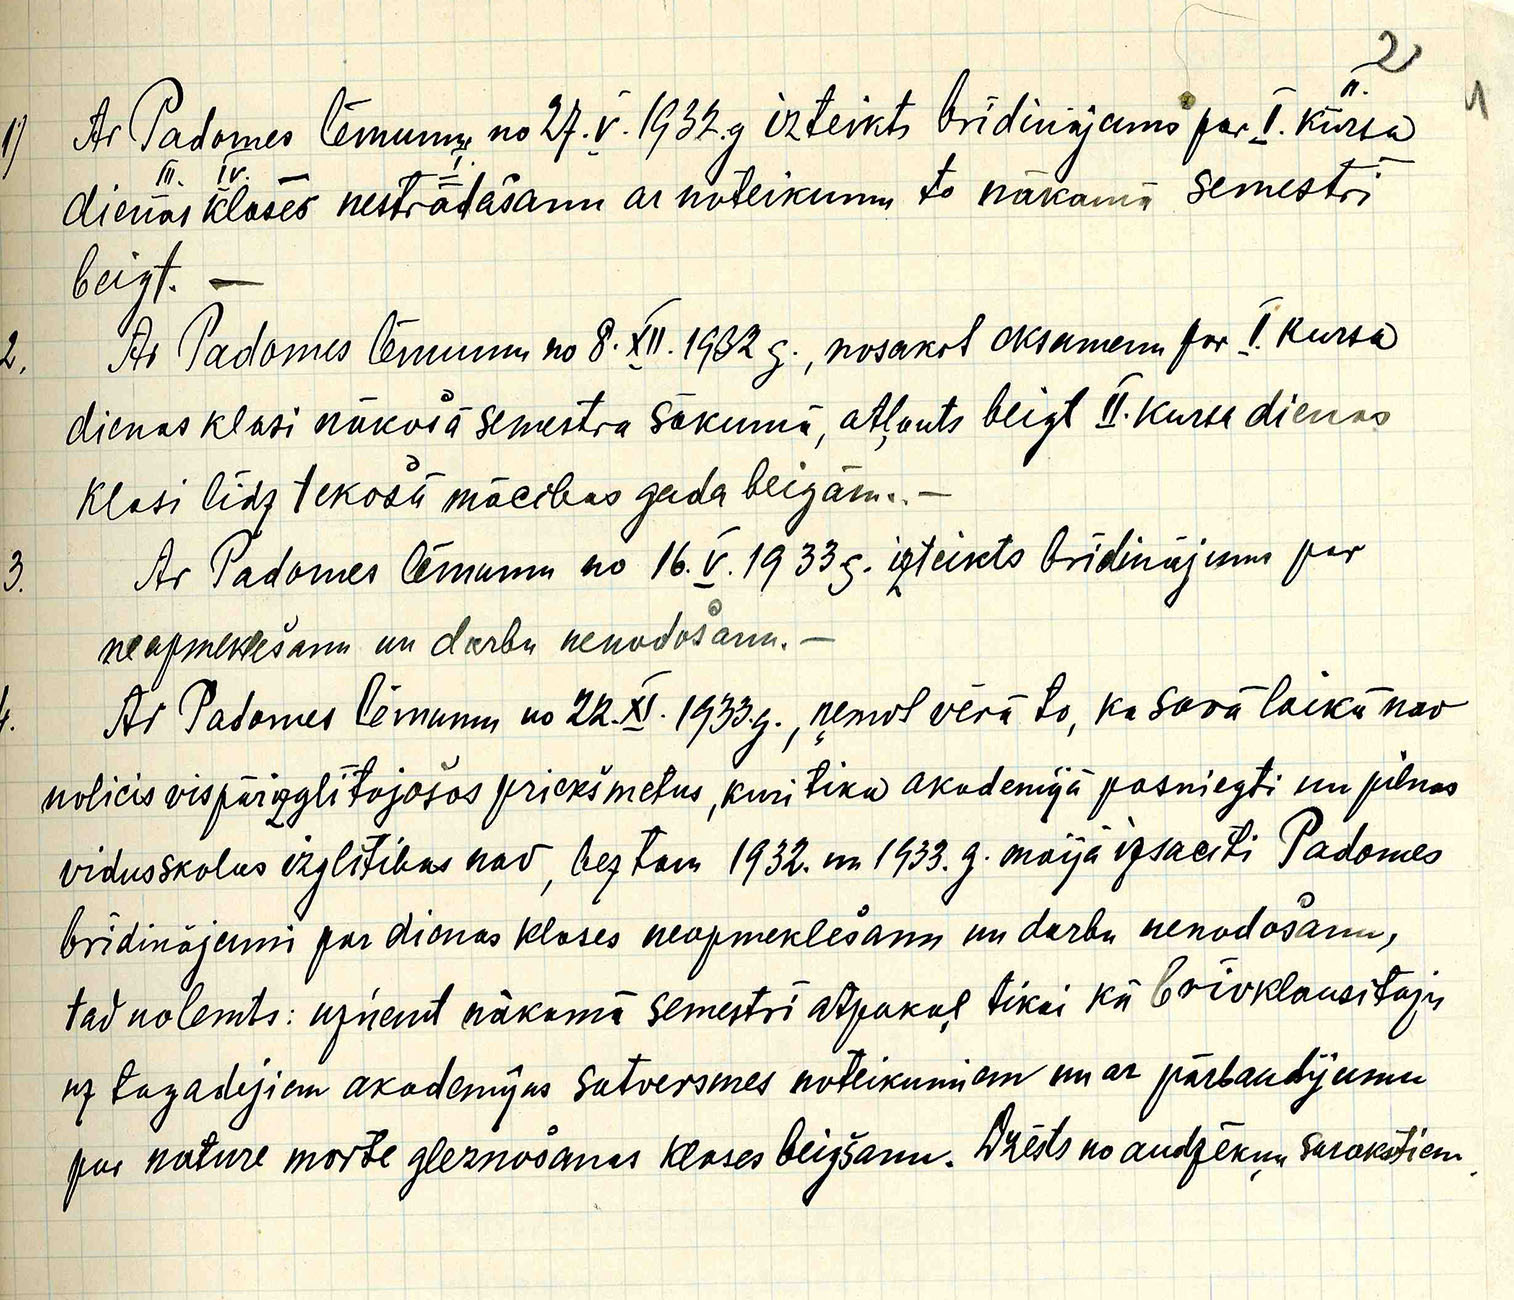 2
1) Ar Padomes lēmumu no 27. V. 1932. g izteikts brīdinājums par I. kursa
dienas klases nestrādāšanu ar noteikumu to nākamā semestrī
beigt. —
2. Ar Padomes lēmumu no 8. XII. 1932 g., nosakot eksamenu par I. kursa
dienas klasi nākošā semestra sākumā, atļauts beigt II. kursa dienas
klasi līdz tekošā mācības gada beigām. —
3. Ar Padomes lēmumu no 16. V. 1933 g. izteikts brīdinājums par
neapmeklēšanu un darbu nenodošanu. —
4. Ar Padomes lēmumu no 22. XI. 1933. g., ņemot vērā to, ka savā laikā nav
nolicis vispārizglītojošos priekšmetus, kuri tika akadēmijā pasniegti un pilnas
vidusskolas izglītības nav, bez tam 1932. un 1933. g. maijā izsacīti Padomes
brīdinājumi par dienas klases neapmeklēšanu un darbu nenodošanu,
tad nolemts: uzņemt nākamā semestrī atpakaļ tikai kā brīvklausītāju
uz tagadējiem akadēmijas satversmes noteikumiem un ar pārbaudījumu
par nature morte gleznošanas klases beigšanu. Dzēsts no audzēkņu sarakstiem.